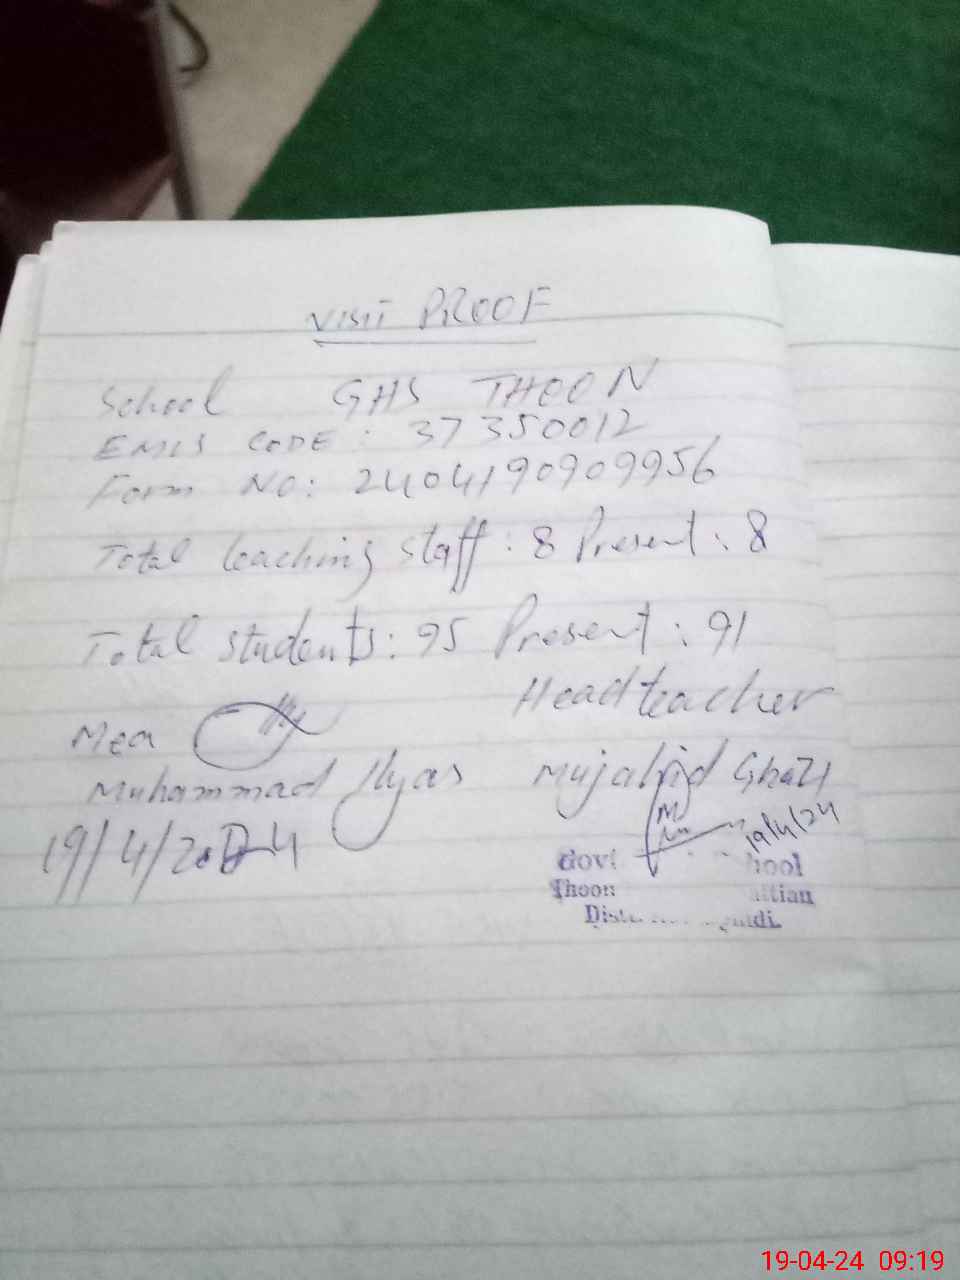 VISIT PROOF
School GHS THOON
EMIS CODE: 37350012
Form NO: 2404190909956
Total teaching staff: 8 Present: 8
Total students: 95 Present: 91
Headteacher
Mea
Muhammad Ilyas Mujahid Ghazi
19/4/2024
19/4/24
Govt
Thoon
19-04-24 09:19